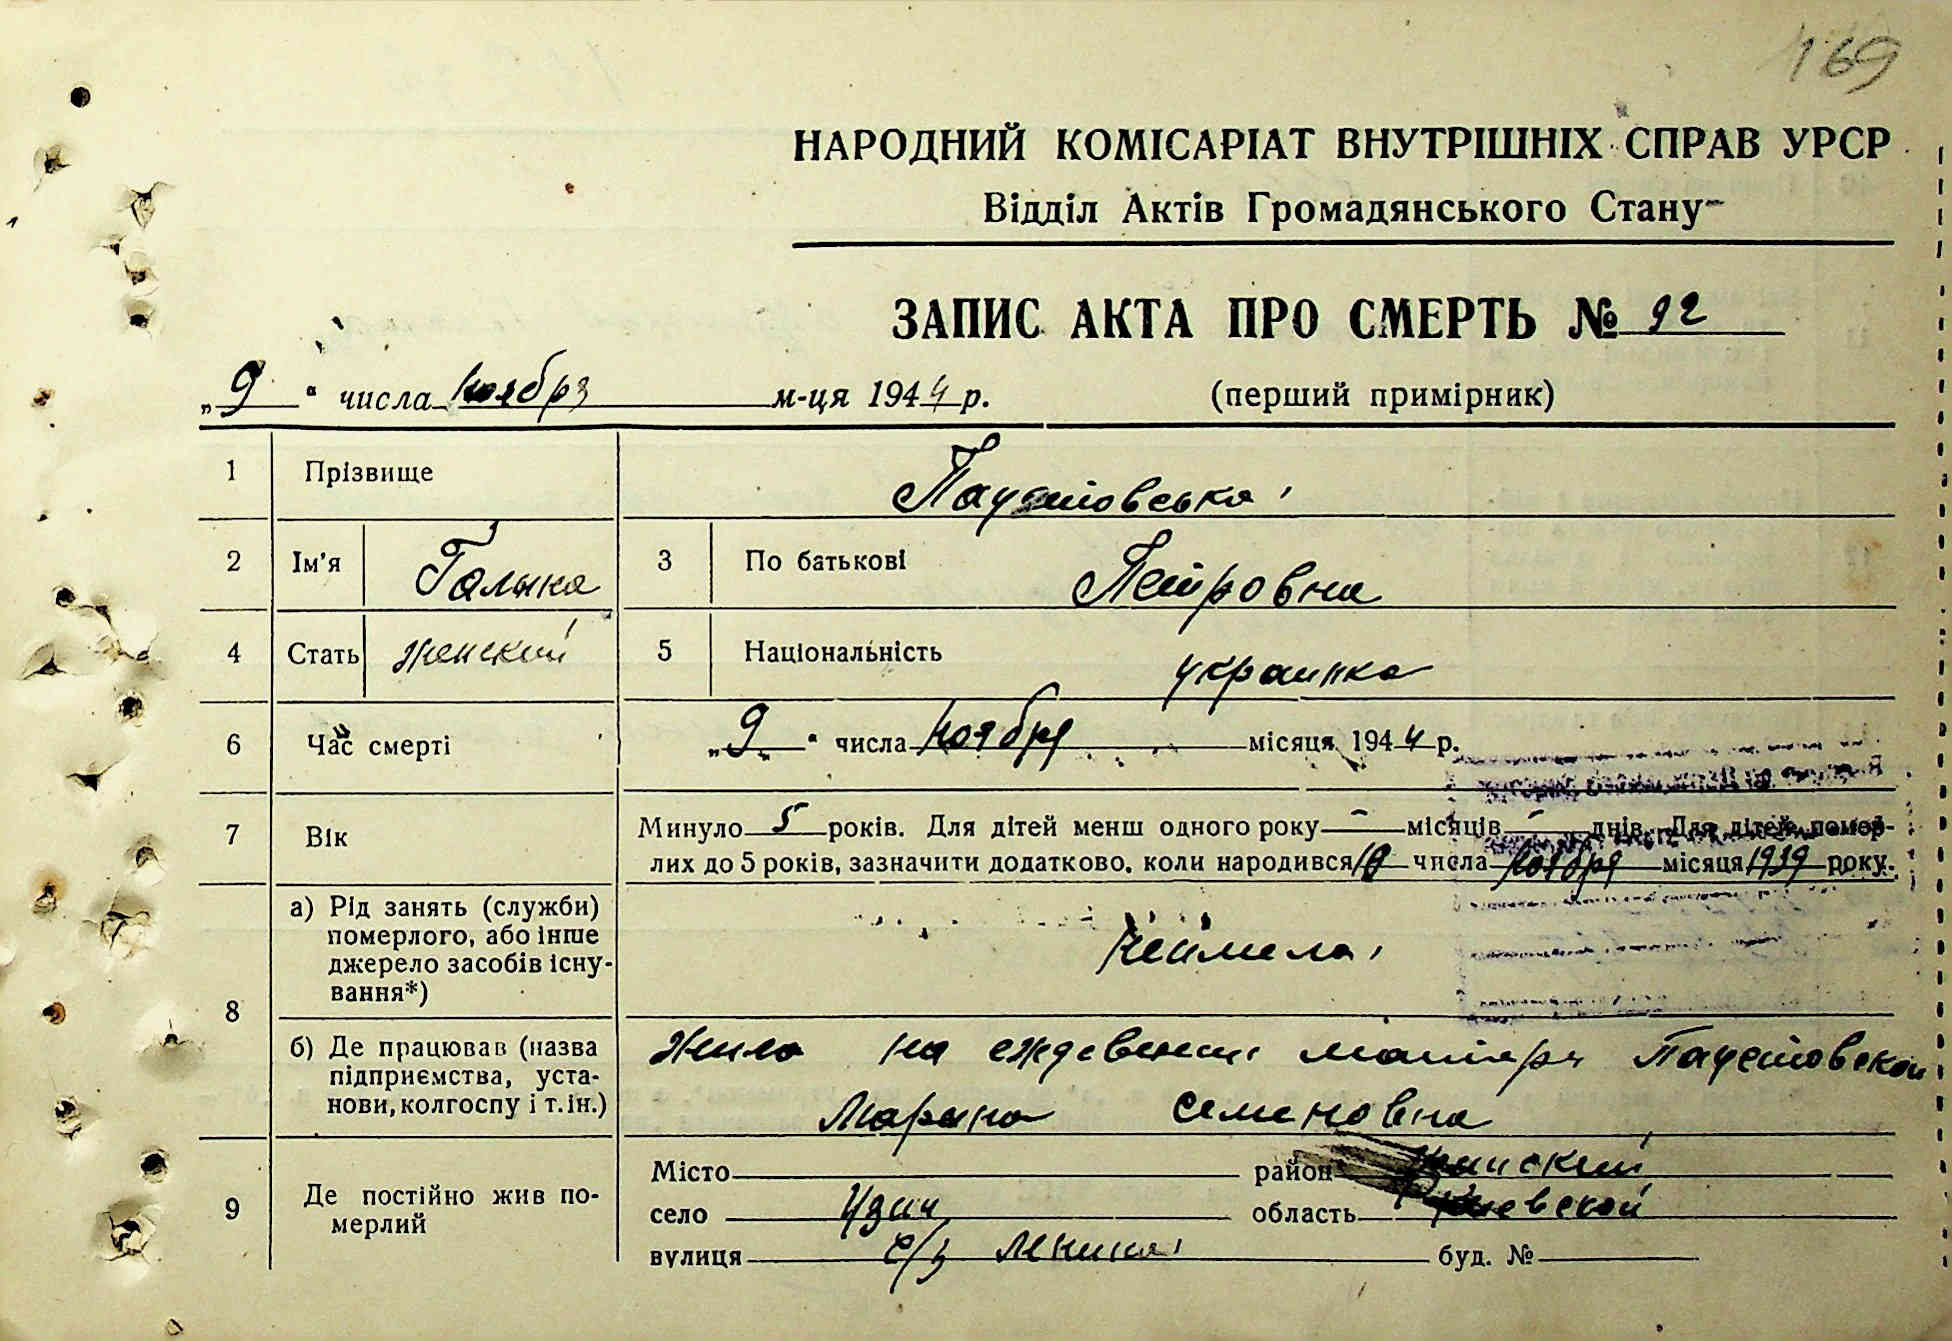 169
НАРОДНИЙ КОМІСАРІАТ ВНУТРІШНІХ СПРАВ УРСР
Відділ Актів Громадянського Стану
ЗАПИС АКТА ПРО СМЕРТЬ № 92
„9“ числа ноября м-ця 1944 р. (перший примірник)
1 Прізвище Паустовська
2 Ім'я Галына 3 По батькові Петровна
4 Стать женский 5 Національність украинка
6 Час смерті „9“ числа ноября місяця 1944 р.
7 Вік Минуло 5 років. Для дітей менш одного року — місяців — днів. Для дітей помер-
лих до 5 років, зазначити додатково, коли народився 10 числа ноября місяця 1939 року.
8 а) Рід занять (служби) померлого, або інше джерело засобів існу-вання*)
б) Де працював (назва підприємства, уста-нови, колгоспу і т. ін.) Жила на иждевении матери Паустовской
Марина Семеновна
9 Де постійно жив по-мерлий Місто район
село Узин область Киевской
вулиця с/з Ленина буд. №